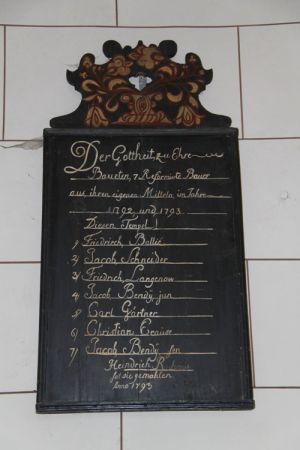 Der Gottheit, zu Ehre
Baueten, 7 Reformirte Bauer
aus ihren eigenen Mitteln im Jahre
1792 und 1793
Diesen Tempel!
1 Friedrich Bollie
2 Jacob Schneider
3 Friedrich Langenow
4 Jacob Bendÿ jun
Carl Gärtner
6 Christian Crause
7 Jacob Bendÿ sen
Heindrich
gemahlen
Anno 1793